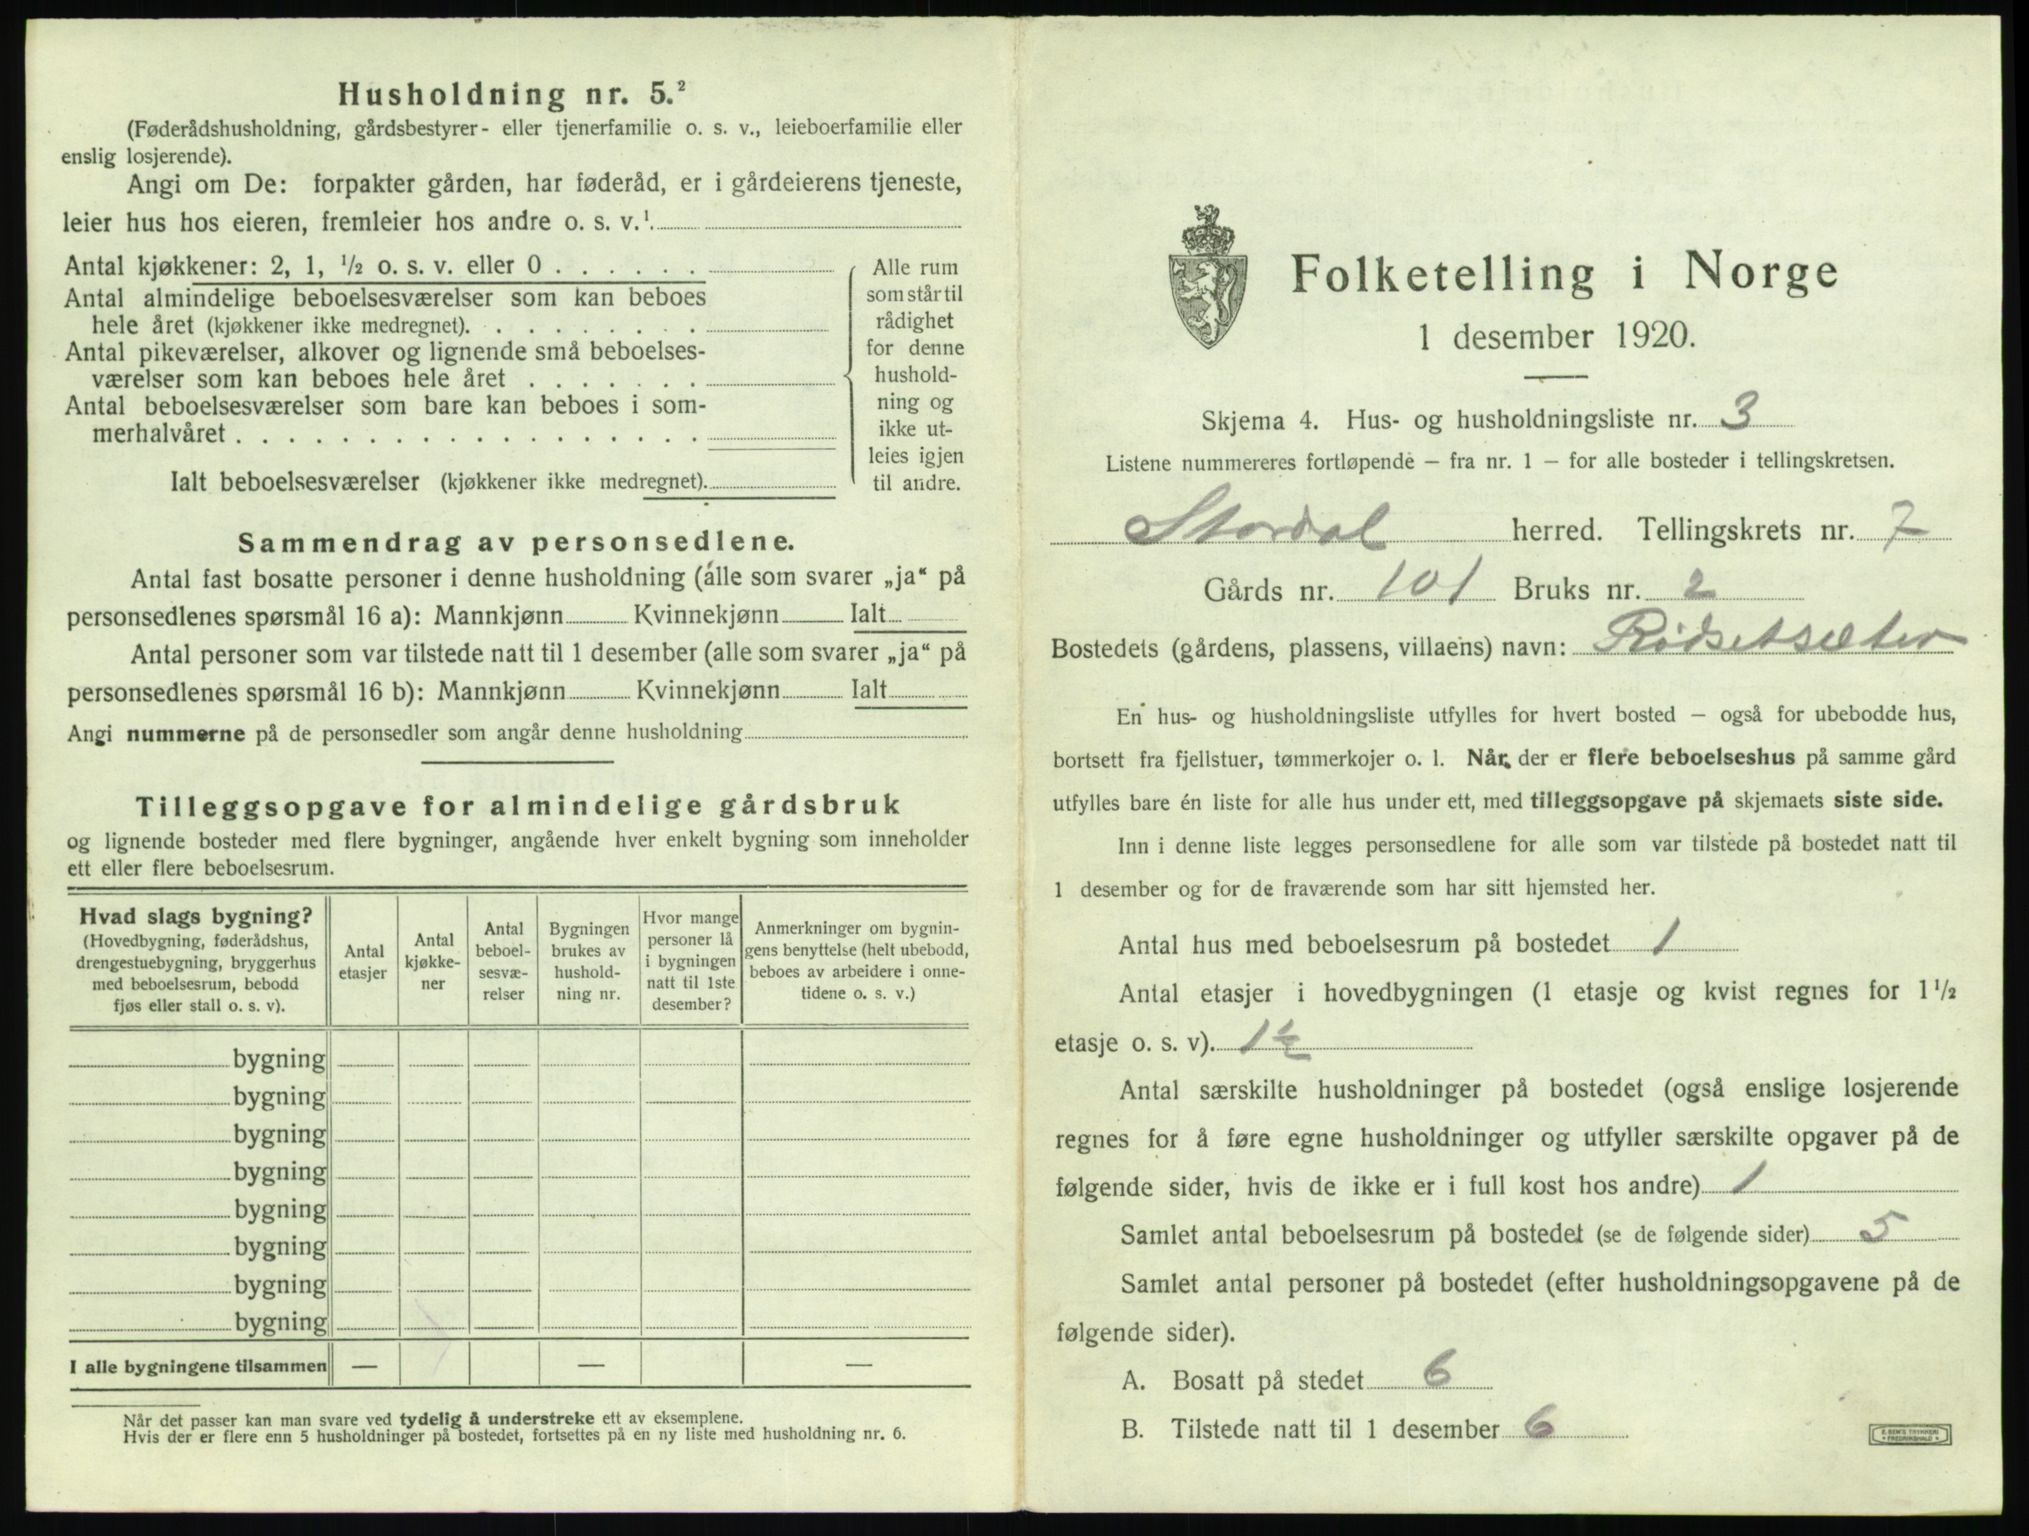 Husholdning nr. 5.²
(Føderådshusholdning, gårdsbestyrer- eller tjenerfamilie o. s. v., leieboerfamilie eller
enslig losjerende).
Angi om De: forpakter gården, har føderåd, er i gårdeierens tjeneste,
leier hus hos eieren, fremleier hos andre o. s. v.¹
Antal kjøkkener: 2, 1, ½ o. s. v. eller 0 . . . . . .
Antal almindelige beboelsesværelser som kan beboes
hele året (kjøkkener ikke medregnet). . . . . . . . .
Antal pikeværelser, alkover og lignende små beboelses-
værelser som kan beboes hele året . . . . . . .
Antal beboelsesværelser som bare kan beboes i som-
merhalvåret . . . . . . . . . . . . . . . . . .
Ialt beboelsesværelser (kjøkkener ikke medregnet).
Alle rum
som står til
rådighet
for denne
hushold-
ning og
ikke ut-
leies igjen
til andre.
Sammendrag av personsedlene.
Antal fast bosatte personer i denne husholdning (alle som svarer „ja“ på
personsedlenes spørsmål 16 a): Mannkjønn Kvinnekjønn Ialt
Antal personer som var tilstede natt til 1 desember (alle som svarer „ja“ på
personsedlenes spørsmål 16 b): Mannkjønn Kvinnekjønn Ialt
Angi nummerne på de personsedler som angår denne husholdning
Tilleggsopgave for almindelige gårdsbruk
og lignende bosteder med flere bygninger, angående hver enkelt bygning som inneholder
ett eller flere beboelsesrum.
Hvad slags bygning?
(Hovedbygning, føderådshus,
drengestuebygning, bryggerhus
med beboelsesrum, bebodd
fjøs eller stall o. s. v).
Antal
etasjer
Antal
kjøkke-
ner
Antal
beboel-
sesvæ-
relser
Bygningen
brukes av
hushold-
ning nr.
Hvor mange
personer lå
i bygningen
natt til 1ste
desember?
Anmerkninger om bygnin-
gens benyttelse (helt ubebodd,
beboes av arbeidere i onne-
tidene o. s. v.)
bygning
bygning
bygning
bygning
bygning
bygning
bygning
bygning
I alle bygningene tilsammen — — —
Når det passer kan man svare ved tydelig å understreke ett av eksemplene.
Hvis der er flere enn 5 husholdninger på bostedet, fortsettes på en ny liste med husholdning nr. 6.
Folketelling i Norge
1 desember 1920.
Skjema 4. Hus- og husholdningsliste nr. 3
Listene nummereres fortløpende – fra nr. 1 – for alle bosteder i tellingskretsen.
Stordal herred. Tellingskrets nr. 7
Gårds nr. 101 Bruks nr. 2
Bostedets (gårdens, plassens, villaens) navn: Rødsetsæter
En hus- og husholdningsliste utfylles for hvert bosted – også for ubebodde hus,
bortsett fra fjellstuer, tømmerkojer o. l. Når der er flere beboelseshus på samme gård
utfylles bare én liste for alle hus under ett, med tilleggsopgave på skjemaets siste side.
Inn i denne liste legges personsedlene for alle som var tilstede på bostedet natt til
1 desember og for de fraværende som har sitt hjemsted her.
Antal hus med beboelsesrum på bostedet 1
Antal etasjer i hovedbygningen (1 etasje og kvist regnes for 1½
etasje o. s. v). 1½
Antal særskilte husholdninger på bostedet (også enslige losjerende
regnes for å føre egne husholdninger og utfyller særskilte opgaver på de
følgende sider, hvis de ikke er i full kost hos andre) 1
Samlet antal beboelsesrum på bostedet (se de følgende sider) 5
Samlet antal personer på bostedet (efter husholdningsopgavene på de
følgende sider).
A. Bosatt på stedet 6
B. Tilstede natt til 1 desember 6